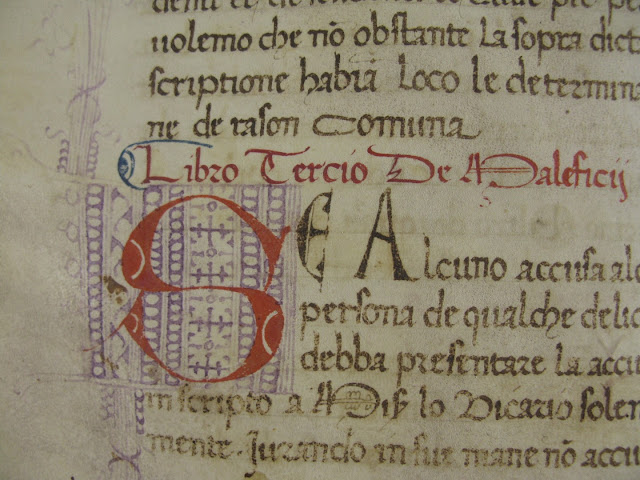 uolemo che nō obstante la sopra dict
scriptione habiā loco le determina
ne de rason Comuna
Libro Tercio De Maleficij
SE Alcuno accusa alc
persona de qualche delic
debba presentare la accu
in scripto a Miſſ lo Vicario solen
mente. Jurando in sue mane nō accu